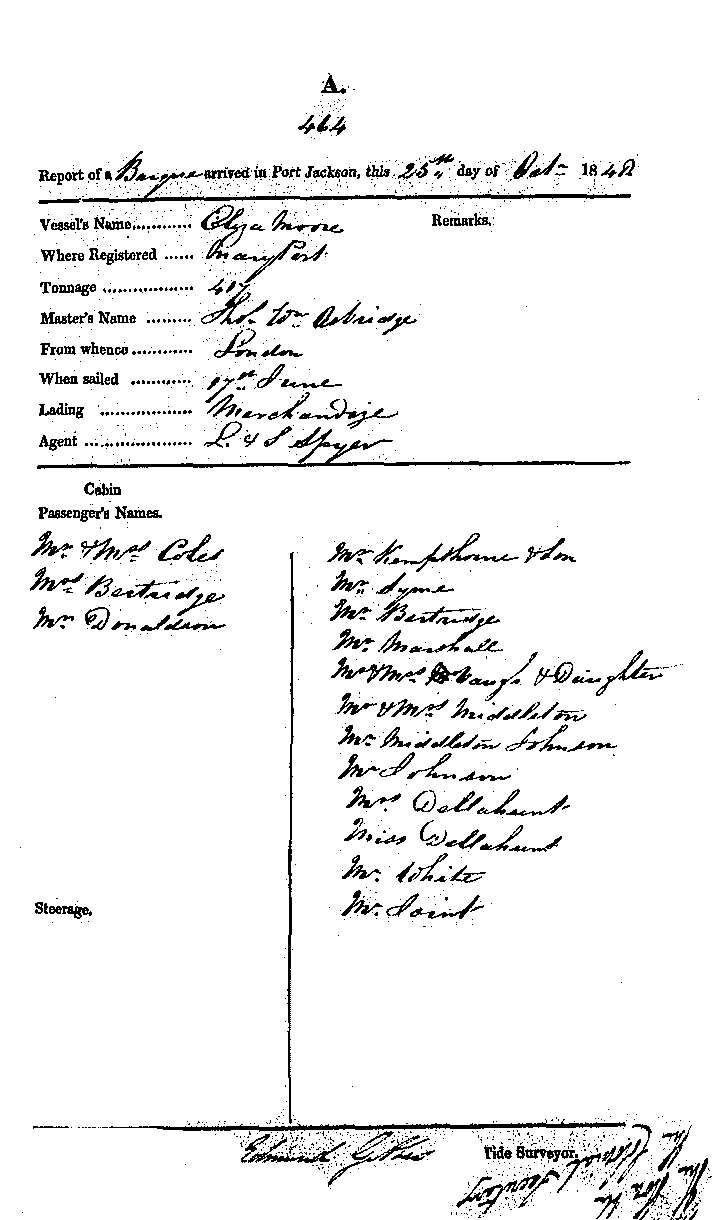 A.
464
Report of a Barque arrived in Port Jackson, this 25th day of Octr 184
Vessel's Name........... Eliza Moore
Remarks.
Where Registered ...... MaryPort
Tonnage .................. 417
Master's Name ......... Thos. Wm
From whence............ London
When sailed ............ 17th June
Lading .................. Merchandize
Agent ..................... L. & S Spyer
Cabin
Passenger's Names.
Mr & Mrs Coles
Mrs Bertridge
Mr Donaldson
Steerage.
Mr Kempthorne & Son
Mr Syme
Mr Bertridge
Mr Marshall
Mr & Mrs & Daughter
Mr & Mrs Middleton
Mr Middleton Johnson
Mr Johnson
Mrs Dellahunt
Miss Dellahunt
Mr. White
Mr. Joint
Edmund
Tide Surveyor.
The Hon the
Colonial Secretary